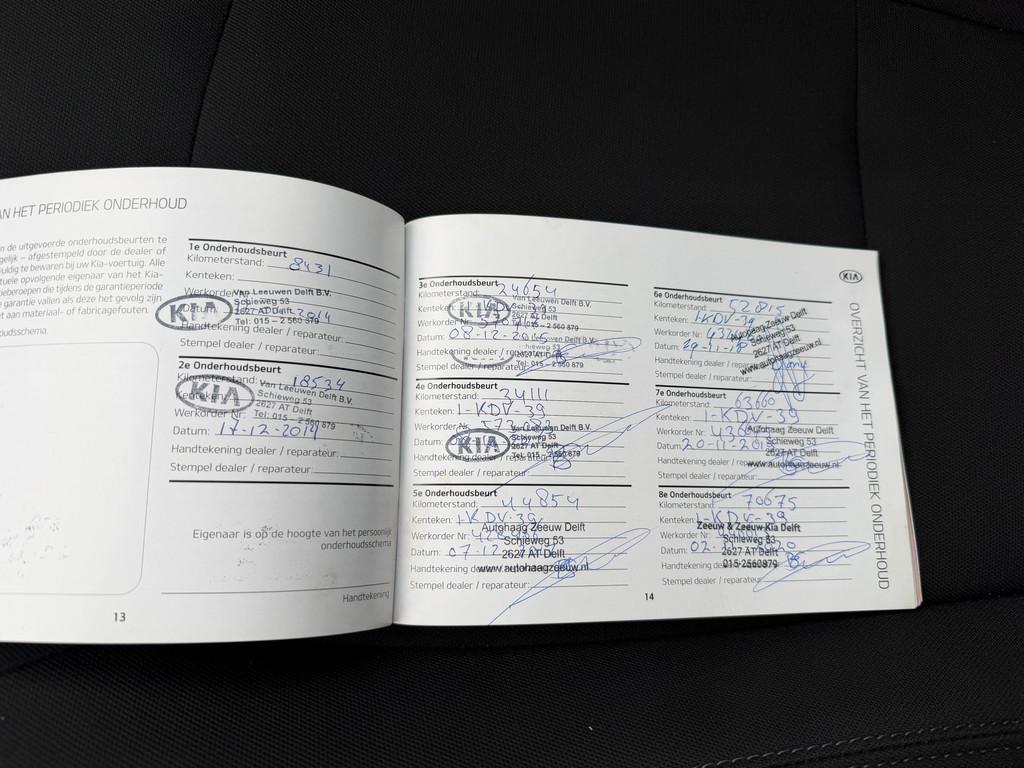 N HET PERIODIEK ONDERHOUD
n de uitgevoerde onderhoudsbeurten te
gelijk – afgestempeld door de dealer of
uldig te bewaren bij uw Kia-voertuig. Alle
tuele opvolgende eigenaar van het Kia-
eberoepen die tijdens de garantieperiode
garantie vallen als deze het gevolg zijn
t aan materiaal- of fabricagefouten.
oudsschema.
1e Onderhoudsbeurt
Kilometerstand: 8431
Kenteken:
Werkorder
Datum: 2014
Handtekening dealer / reparateur:
Stempel dealer / reparateur:
KIA
Van Leeuwen Delft B.V.
Schieweg 53
2627 AT Delft
Tel: 015 – 2 560 879
2e Onderhoudsbeurt
Kilometerstand: 18534
Kenteken:
Werkorder Nr:
Datum: 17-12-2014
Handtekening dealer / reparateur:
Stempel dealer / reparateur:
KIA
Van Leeuwen Delft B.V.
Schieweg 53
2627 AT Delft
Tel: 015 – 2 560 879
Eigenaar is op de hoogte van het persoonlijk
onderhoudsschema
Handtekening
13
3e Onderhoudsbeurt
Kilometerstand: 24654
Kenteken:
Werkorder
Datum: 08-12-2015
Handtekening dealer / reparateur:
Stempel dealer / reparateur:
KIA
Van Leeuwen Delft B.V.
Schieweg 53
2627 AT Delft
Tel: 015 – 2 560 879
4e Onderhoudsbeurt
Kilometerstand: 34111
Kenteken: 1-KDV-39
Werkorder Nr:
Datum:
Handtekening dealer / reparateur:
Stempel dealer / reparateur:
KIA
Van Leeuwen Delft B.V.
Schieweg 53
2627 AT Delft
Tel: 015 – 2 560 879
5e Onderhoudsbeurt
Kilometerstand: 44854
Kenteken: 1-KDV-39
Werkorder Nr:
Datum: 07-12
Handtekening
Stempel dealer / reparateur:
Autohaag Zeeuw Delft
Schieweg 53
2627 AT Delft
www.autohaagzeeuw.nl
6e Onderhoudsbeurt
Kilometerstand: 52815
Kenteken: 1-KDV-39
Werkorder Nr:
Datum: 29-11-18
Handtekening dealer
Stempel dealer / reparateur:
Autohaag Zeeuw Delft
Schieweg 53
2627 AT Delft
www.autohaagzeeuw.nl
7e Onderhoudsbeurt
Kilometerstand: 63660
Kenteken: 1-KDV-39
Werkorder Nr:
Datum: 20-11-2019
Handtekening dealer
Stempel dealer / reparateur:
Autohaag Zeeuw Delft
Schieweg 53
2627 AT Delft
www.autohaagzeeuw.nl
8e Onderhoudsbeurt
Kilometerstand: 70675
Kenteken: 1-KDV-39
Werkorder Nr:
Datum: 02-
Handtekening
Stempel dealer / reparateur:
Zeeuw & Zeeuw Kia Delft
Schieweg 53
2627 AT Delft
015-2560879
14
KIA
OVERZICHT VAN HET PERIODIEK ONDERHOUD